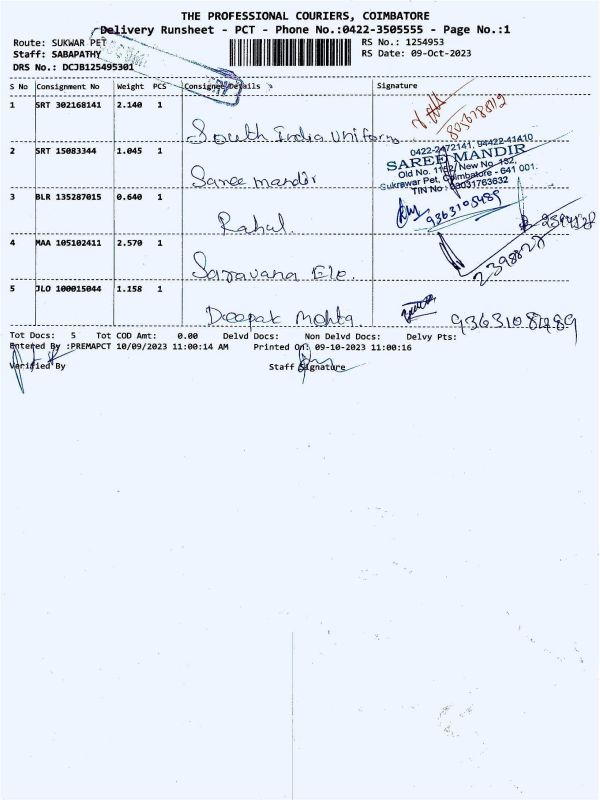 THE PROFESSIONAL COURIERS, COIMBATORE
Delivery Runsheet - PCT - Phone No.:0422-3505555 - Page No.:1
Route: SUKWAR PET RS No.: 1254953
Staff: SABAPATHY RS Date: 09-Oct-2023
DRS No.: DCJB125495301
S No Consignment No Weight PCS Consignee Details Signature
1 SRT 302168141 2.140 1
South India Uniform
2 SRT 15083344 1.045 1
0422-2472141, 94422-41410
SAREE MANDIR
Old No. 1152, New No. 132,
Sukrawar Pet, Coimbatore - 641 001.
Saree mandir
3 BLR 135287015 0.640 1
9363105489
Rahul
4 MAA 105102411 2.570 1
Saravana Ele.
5 JLO 100015044 1.158 1
Deepak mohta.
Tot Docs: 5 Tot COD Amt: 0.00 Delvd Docs: Non Delvd Docs: Delvy Pts:
Entered By :PREMAPCT 10/09/2023 11:00:14 AM Printed On: 09-10-2023 11:00:16
Verified By Staff Signature